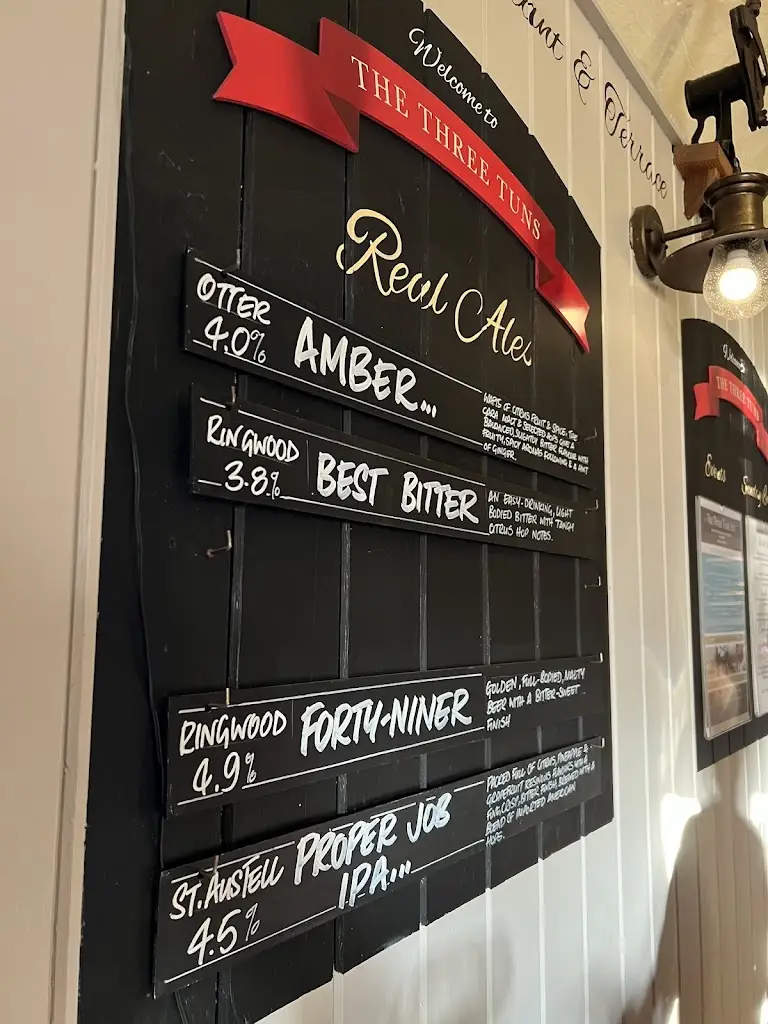 Welcome to
THE THREE TUNS
Real Ales
OTTER
4.0%
AMBER...
WAFTS OF CITRUS FRUIT & SPICE. THE
CARA MALT & SELECTED HOPS GIVE A
BALANCED, SLIGHTLY BITTER FLAVOUR WITH
FRUITY, SPICY AROMAS FOLLOWING & A HINT
OF GINGER.
RINGWOOD
3.8%
BEST BITTER
AN EASY-DRINKING, LIGHT
BODIED BITTER WITH TANGY
CITRUS HOP NOTES.
RINGWOOD
4.9%
FORTY-NINER
GOLDEN, FULL-BODIED, MALTY
BEER WITH A BITTER-SWEET
FINISH
ST. AUSTELL
4.5%
PROPER JOB
IPA...
PACKED FULL OF CITRUS, PINEAPPLE &
GRAPEFRUIT RESINOUS FLAVOURS WITH A
FINE, CRISP, BITTER FINISH, BREWED WITH A
BLEND OF IMPORTED AMERICAN
HOPS.
& Terrace
Welcome to
THE THREE TUNS
Events